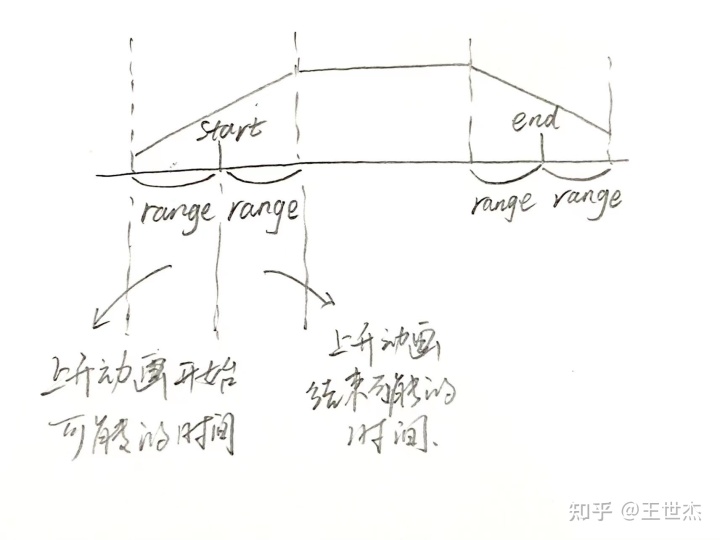 start
end
range
range
range
range
上升动画开始
可能的时间
上升动画
结束可能的
时间.
知乎 @王世杰